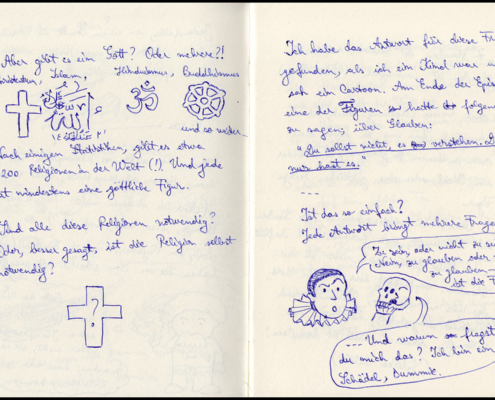 Aber gibt es ein Gott? Oder mehrere?!
Islam, Hinduismus, Buddhismus
und so weiter
Nach einigen Statistiken, gibt es etwa
200 Religionen in der Welt (!). Und jede
hat mindestens eine göttliche Figur.
Sind alle diese Religionen notwendig?
Oder, besser gesagt, ist die Religion selbst
notwendig?
?
Ich habe das Antwort für diese
gefunden, als ich ein Kind war
sah ein Cartoon. Am Ende der
eine der Figuren hatte folgen
zu sagen, über Glauben:
"Du sollst nicht, es verstehen.
nur hast es."
---
Ist das so einfach?
Jede Antwort bringt mehrere
Zu sein, oder nicht zu
Nein, zu glauben oder
zu glauben
ist die
--- Und warum fragst
du mich das? Ich bin ein
Schädel, Dummie.